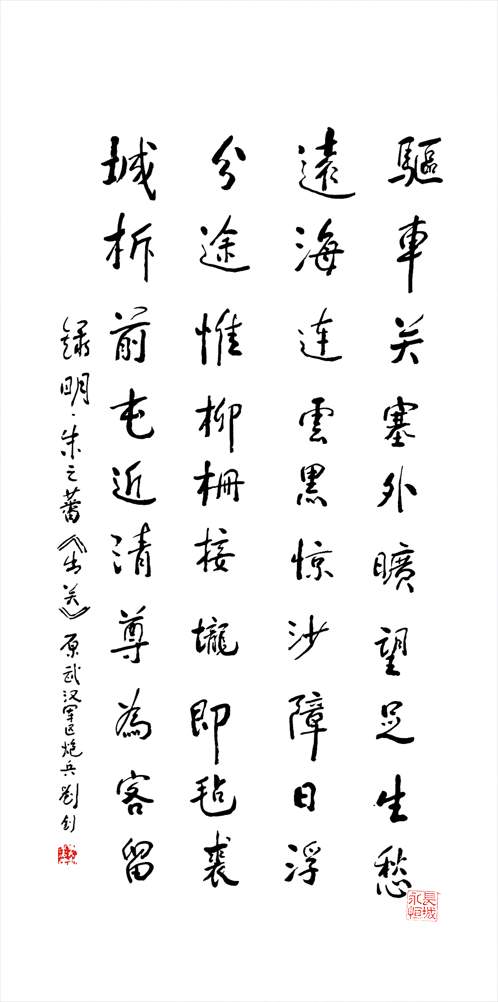 驅車关塞外曠望足生愁
遠海连雲黑惊沙障日浮
分途惟柳栅接壠即毡裘
城柝前屯近清尊為客留
錄明·朱之蕃《出关》原武汉军区炮兵劉
長城永恒